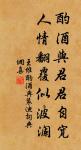 酌酒與君君自寬
人情翻覆似波瀾
王維酌酒與裴迪